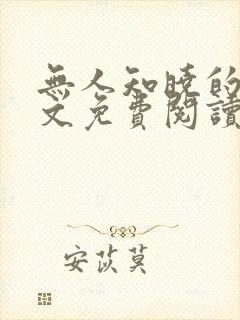 無人知曉的
文免費閱讀
安苡莫